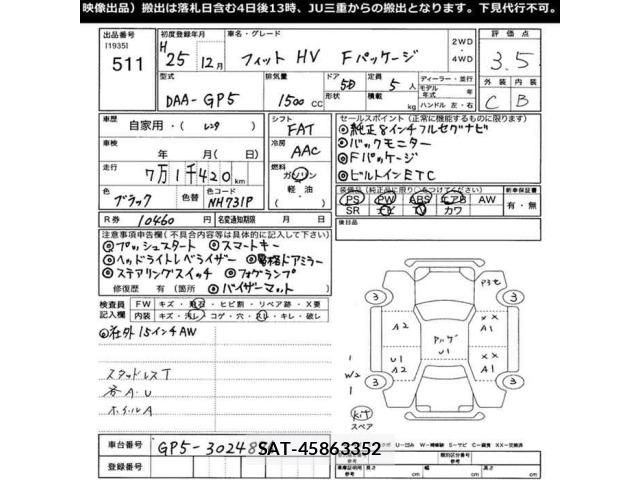 映像出品）搬出は落札日含む4日後13時、JU三重からの搬出となります。下見代行不可。
出品番号
[1935]
511
初度登録年月
H
25 12月
車名・グレード
フィット HV Fパッケージ
2WD
・
4WD
評価点
3.5
型式
DAA-GP5
排気量
1500 CC
ドア 5D
形状
定員 5人
積載 kg
ディーラー・並行
モデル年式 年
ハンドル 左・右
外装 内装
C B
車歴
自家用・(レンタ)
車検
年 月
走行
7万1千420 km
色
ブラック
色替
色コード
NH731P
シフト
FAT
冷房
AAC
燃料
ガソリン
軽油
・
( )
セールスポイント(正常に機能するものに限ります)
◎純正8インチフルセグナビ
◎バックモニター
◎Fパッケージ
◎ビルトインETC
装備品(純正品に限り○をつけてください)
PS PW ABS エアB AW
SR ナビ TV カワ
新車保証書
有・無
後日品
R券 10460
名変通知期限 月 日
注意事項申告欄(不具合内容等は具体的に記入して下さい)
◎プッシュスタート ◎スマートキー
◎ヘッドライトレベライザー ◎電格ドアミラー
◎ステアリングスイッチ ◎フォグランプ
修復歴 有(箇所 ◎バイザーマット)
検査員記入欄
FW キズ・飛石・ヒビ割・リペア跡・X要
内装 キズ・汚レ・コゲ・穴・スレ・キレ・破レ
◎社外15インチAW
スタッドレスT
ホイルA
1
W2
1
3
3
3
3
A2
U1
A2
U1
XX
A1
XX
A1
kit
スペア
車台番号
GP5-30248
SAT-45863352
登録番号
車庫証明用 長さ cm 幅 cm 高さ cm